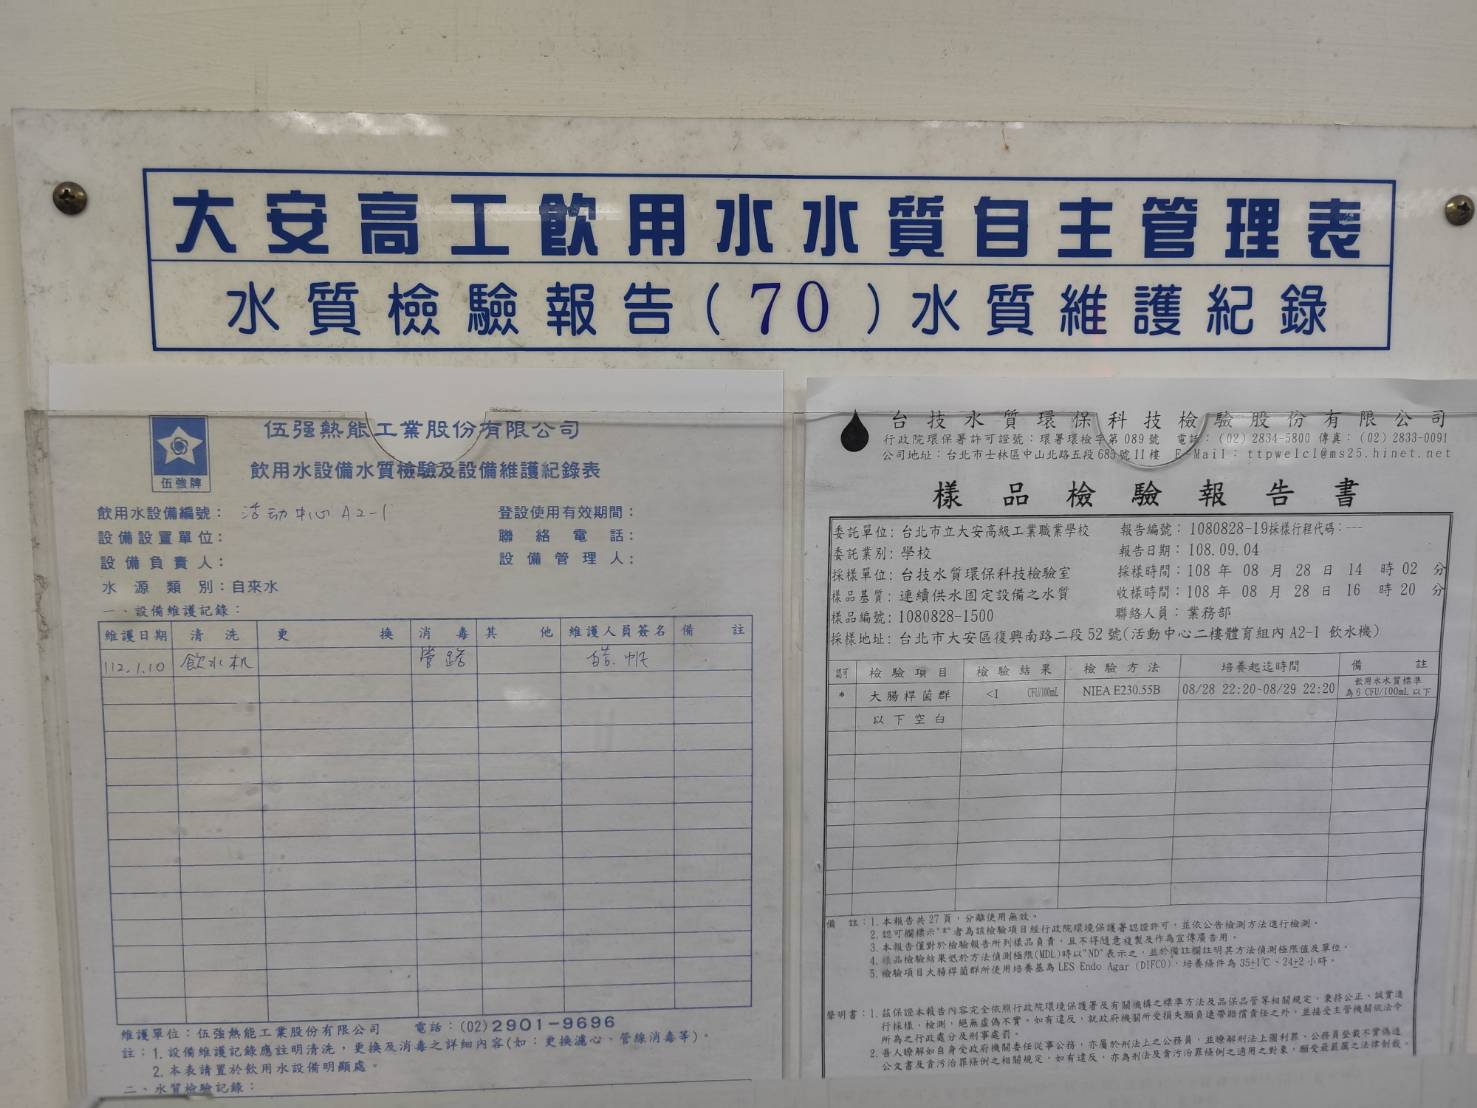 大安高工飲用水水質自主管理表
水質檢驗報告(70)水質維護紀錄
伍強牌
伍强熱能工業股份有限公司
飲用水設備水質檢驗及設備維護紀錄表
飲用水設備編號：活动中心 A2-1
登設使用有效期間：
設備設置單位：
聯絡電話：
設備負責人：
設備管理人：
水源類別：自來水
一、設備維護記錄：
維護日期 清洗 更換 消毒 其他 維護人員簽名 備註
112.1.10 飲水机 管路
維護單位：伍強熱能工業股份有限公司 電話：(02)2901-9696
註：1. 設備維護記錄應註明清洗，更換及消毒之詳細內容(如：更換濾心、管線消毒等)。
2. 本表請置於飲用水設備明顯處。
二、水質檢驗記錄：
台技水質環保科技檢驗股份有限公司
行政院環保署許可證號：環署環檢字第 089 號 電話：(02) 2834-5800 傳真：(02) 2833-0091
公司地址：台北市士林區中山北路五段 685 號 11 樓 E-Mail：ttpwelcl@ms25.hinet.net
樣品檢驗報告書
委託單位：台北市立大安高級工業職業學校 報告編號：1080828-19採樣行程代碼：---
委託業別：學校 報告日期：108.09.04
採樣單位：台技水質環保科技檢驗室 採樣時間：108 年 08 月 28 日 14 時 02 分
樣品基質：連續供水固定設備之水質 收樣時間：108 年 08 月 28 日 16 時 20 分
樣品編號：1080828-1500 聯絡人員：業務部
採樣地址：台北市大安區復興南路二段 52 號(活動中心二樓體育組內 A2-1 飲水機)
認可 檢驗項目 檢驗結果 檢驗方法 培養起迄時間 備註
* 大腸桿菌群 <1 CFU/100mL NIEA E230.55B 08/28 22:20-08/29 22:20 飲用水水質標準
為 6 CFU/100mL 以下
以下空白
備註：1. 本報告共 27 頁，分離使用無效。
2. 認可欄標示"*"者為該檢驗項目經行政院環境保護署認證許可，並依公告檢測方法進行檢測。
3. 本報告僅對於檢驗報告所列樣品負責，且不得隨意複製及作為宣傳廣告用。
4. 樣品檢驗結果低於方法偵測極限(MDL)時以"ND"表示之，並於備註欄註明其方法偵測極限值及單位。
5. 檢驗項目大腸桿菌群所使用培養基為 LES Endo Agar (DIFCO)，培養條件為 35±1℃、24±2 小時。
聲明書：1. 茲保證本報告內容完全依照行政院環境保護署及有關機構之標準方法及品保品管等相關規定，秉持公正、誠實進
行採樣，檢測，絕無虛偽不實，如有違反，就政府機關所受損失願負連帶賠償責任之外，並接受主管機關依法令
所為之行政處分及刑事處罰。
2. 吾人瞭解如自身受政府機關委任從事公務，亦屬於刑法上之公務員，並瞭解刑法上圖利罪、公務員登載不實偽造
公文書及貪污治罪條例之相關規定，如有違反，亦為刑法及貪污治罪條例之適用之對象，願受最嚴厲之法律制裁。